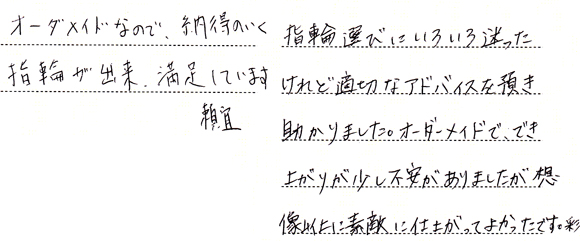 オーダメイドなので、納得のいく
指輪が出来、満足しています
頼宜
指輪選びにいろいろ迷った
けれど適切なアドバイスを頂き
助かりました。オーダーメイドで、でき
上がりが少し不安がありましたが想
像以上に素敵に仕上がってよかったです。彩